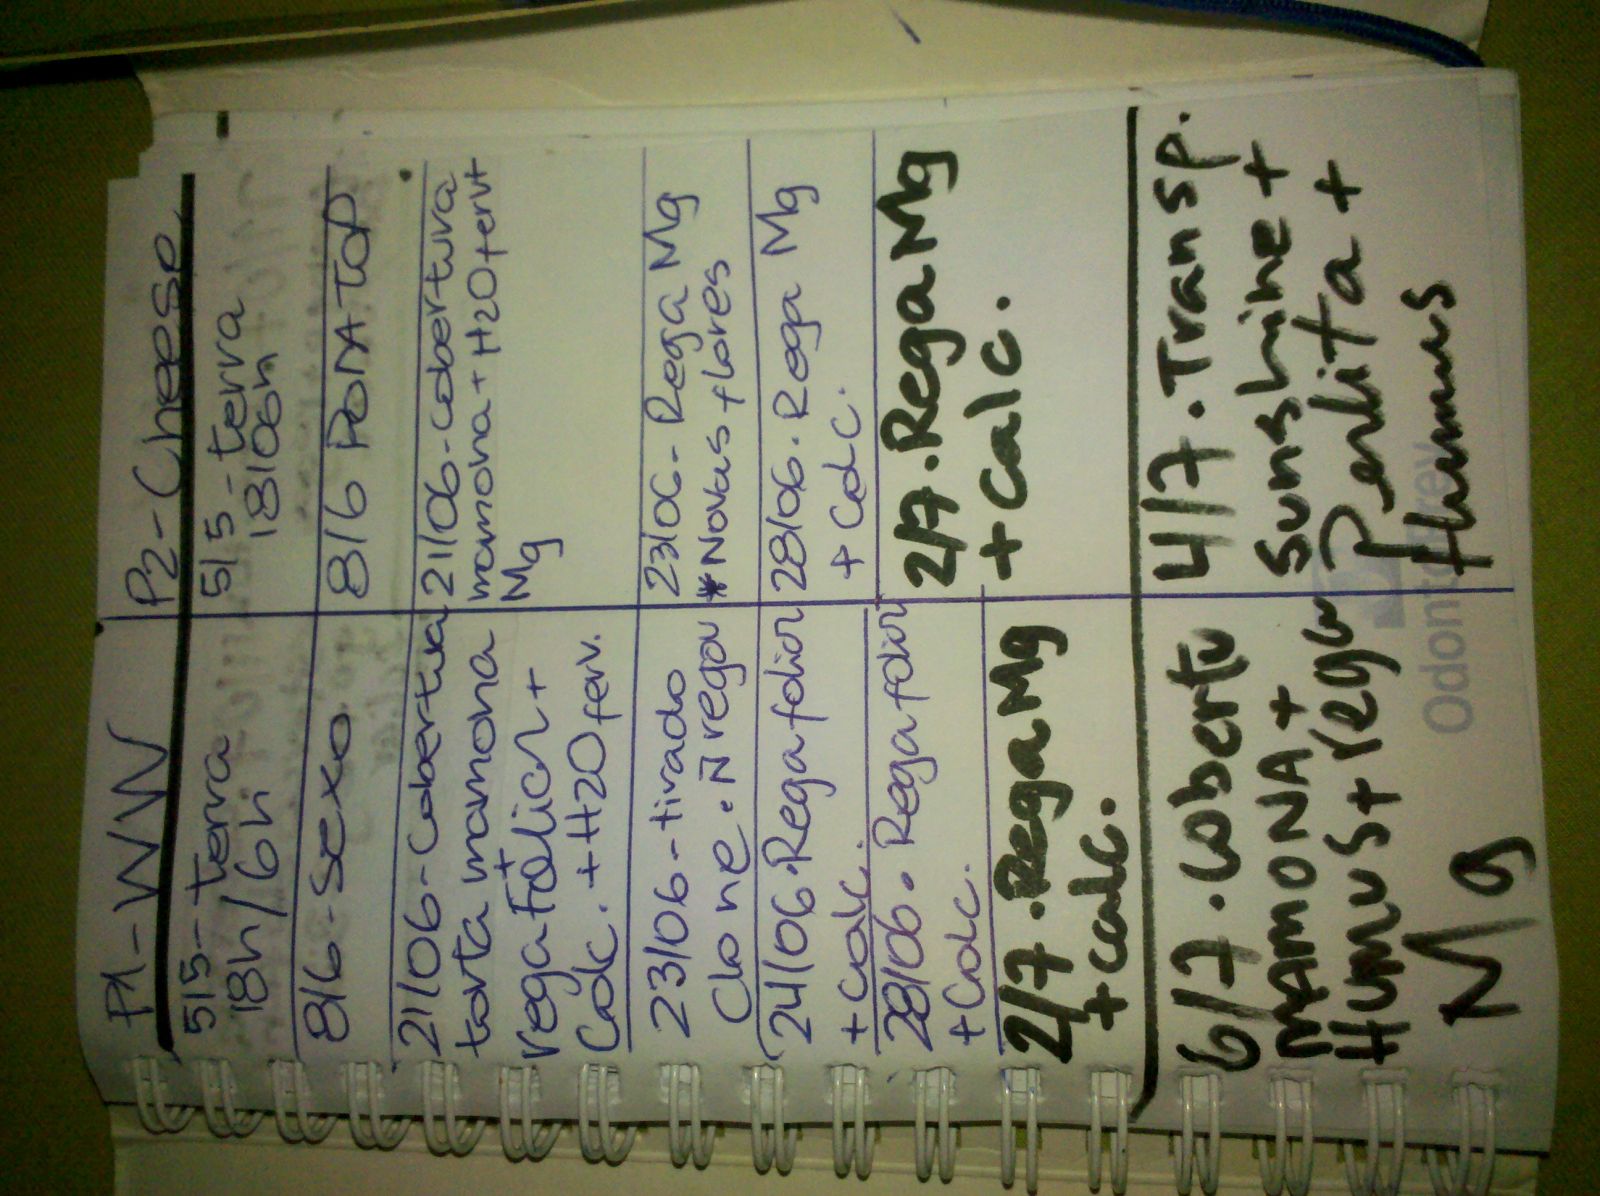 P1-WW
5/5-terra
18h/6h
8/6-Sexo
21/06-Cobertura
torta mamona
rega Fólicr +
Calc. + H2O ferv.
23/06-tirado
Clone. Ñ regou
24/06.Rega folior
+ Calc.
28/06. Rega folior
+ Calc.
2/7.Rega Mg
+ calc.
6/7.cobertu
mAmoNA +
Humus + rega
Mg
P2-Cheese
5/5-terra
18/06h
8/6 PODA TOP
21/06-cobertura
mamona + H2O ferv +
Mg
23/06-Rega Mg
*Novas flores
28/06. Rega Mg
+ Calc.
2/7.Rega Mg
+ calc.
4/7.Transp.
Sunshine +
Perlita +
Humus